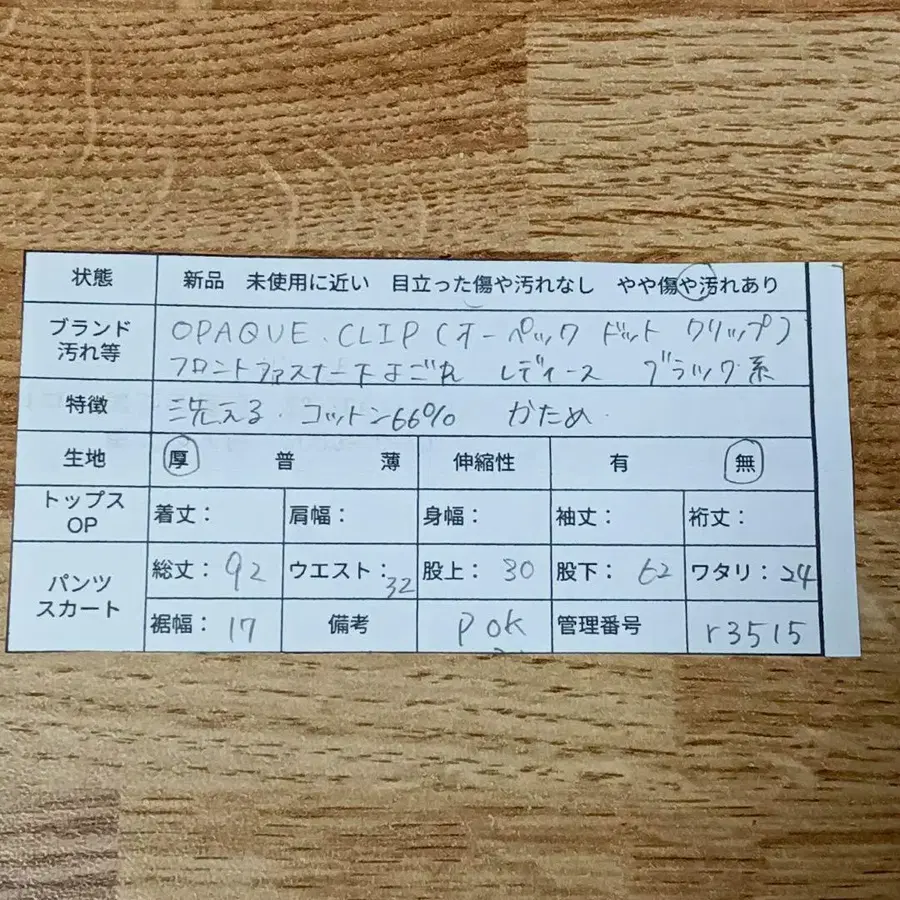 状態 新品 未使用に近い 目立った傷や汚れなし やや傷や汚れあり
ブランド 汚れ等 OPAQUE.CLIP(オーペック ドット クリップ)
フロントファスナー下よごれ レディース ブラック系
特徴 洗える. コットン66% かため.
生地 厚 普 薄 伸縮性 有 無
トップス OP 着丈: 肩幅: 身幅: 袖丈: 裄丈:
パンツ スカート 総丈: 92 ウエスト: 32 股上: 30 股下: 62 ワタリ: 24
裾幅: 17 備考 P OK 管理番号 r3515